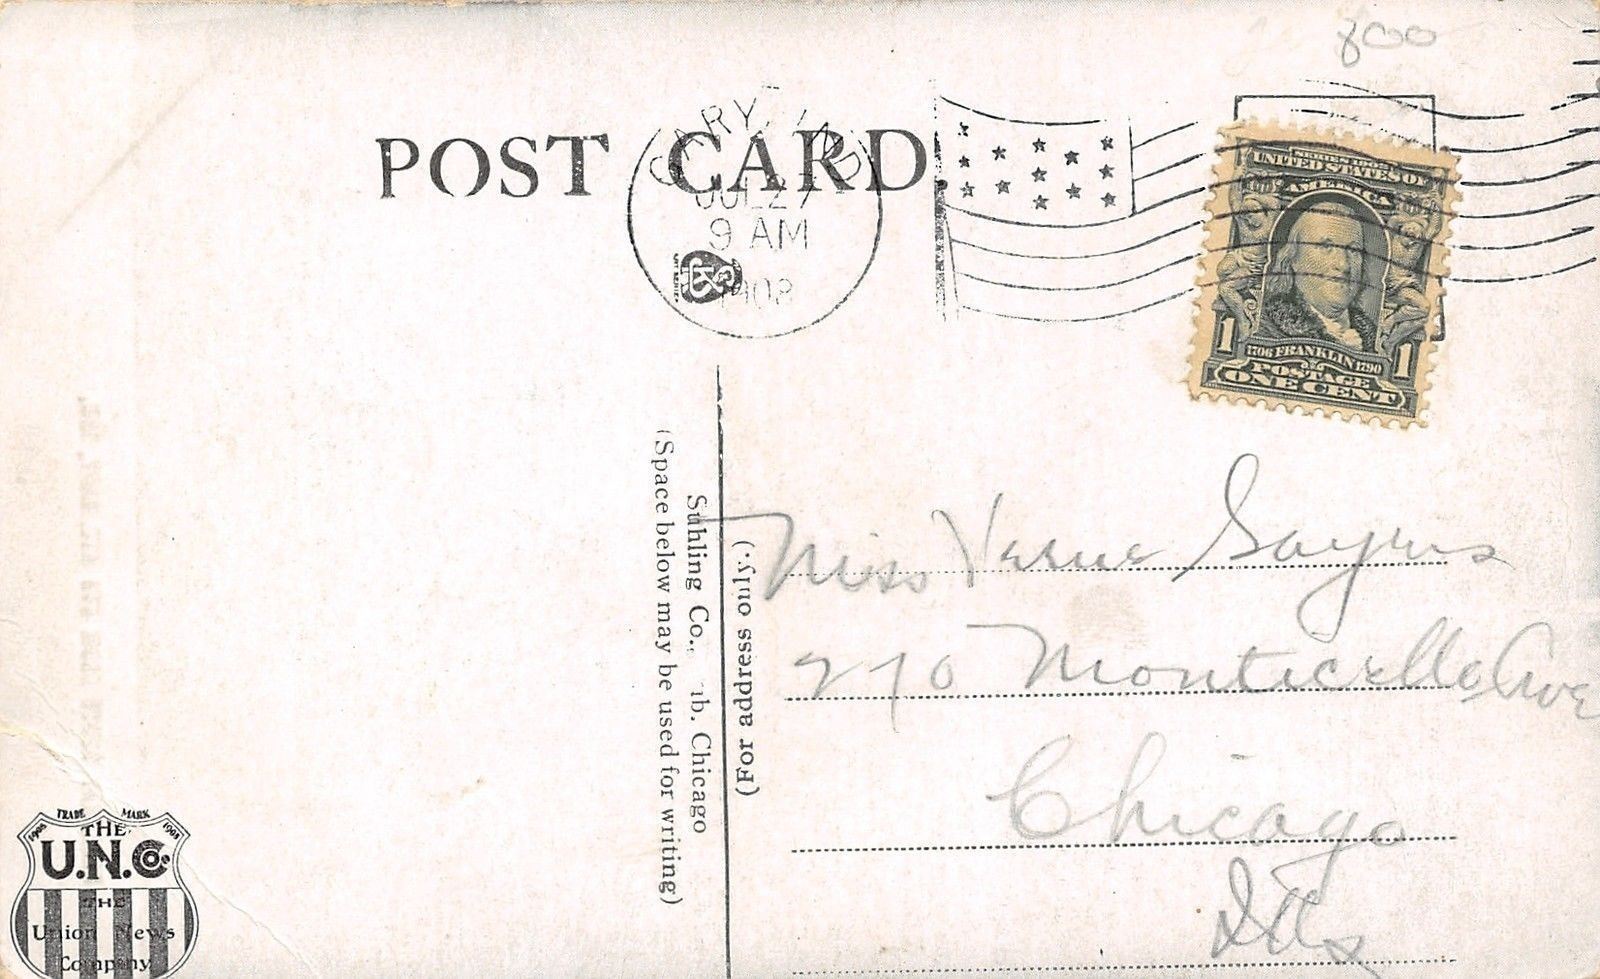 800
POST CARD
GARY, IND
JUL 27
9 AM
1908
UNITED STATES OF
AMERICA
1 1
1706 FRANKLIN 1790
POSTAGE
ONE CENT
Suhling Co., Chicago
(Space below may be used for writing)
(For address only.)
Miss Verne Sayers
270 Monticello Ave
Chicago
Ills
TRADE MARK
THE
U.N.Co.
THE
Union News
Company